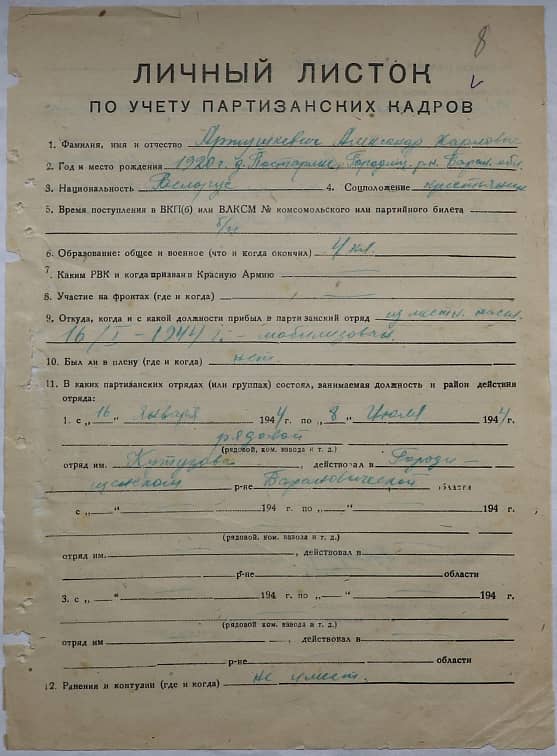 8
ЛИЧНЫЙ ЛИСТОК
ПО УЧЕТУ ПАРТИЗАНСКИХ КАДРОВ
1. Фамилия, имя и отчество Артушкевич Александр Карлович
2. Год и место рождения 1920 г. д. Постарины, Городищ. р-н, Баран. обл.
3. Национальность Белорус 4. Соцположение крестьянин
5. Время поступления в ВКП(б) или ВЛКСМ № комсомольского или партийного билета
б/п
6. Образование: общее и военное (что и когда окончил) 4 кл.
7. Каким РВК и когда призван в Красную Армию —
8. Участие на фронтах (где и когда) —
9. Откуда, когда и с какой должности прибыл в партизанский отряд из местн. насел.
16/I – 1944 г. – мобилизован.
10. Был ли в плену (где и когда) нет.
11. В каких партизанских отрядах (или группах) состоял, занимаемая должность и район действия
отряда:
1. с „16“ января 1944 г. по „8“ Июля 1944 г.
рядовой
(рядовой, ком. взвода и т. д.)
отряд им. Кутузова, действовал в Городи-
щенском р-не Барановической области
с „—“ 194 г. по „—“ 194 г.
(рядовой, ком. взвода и т. д.)
отряд им. , действовал в
р-не области
3. с „—“ 194 г. по „—“ 194 г.
(рядовой, ком. взвода и т. д.)
отряд им , действовал в
р-не области
12. Ранения и контузии (где и когда) не имеет.